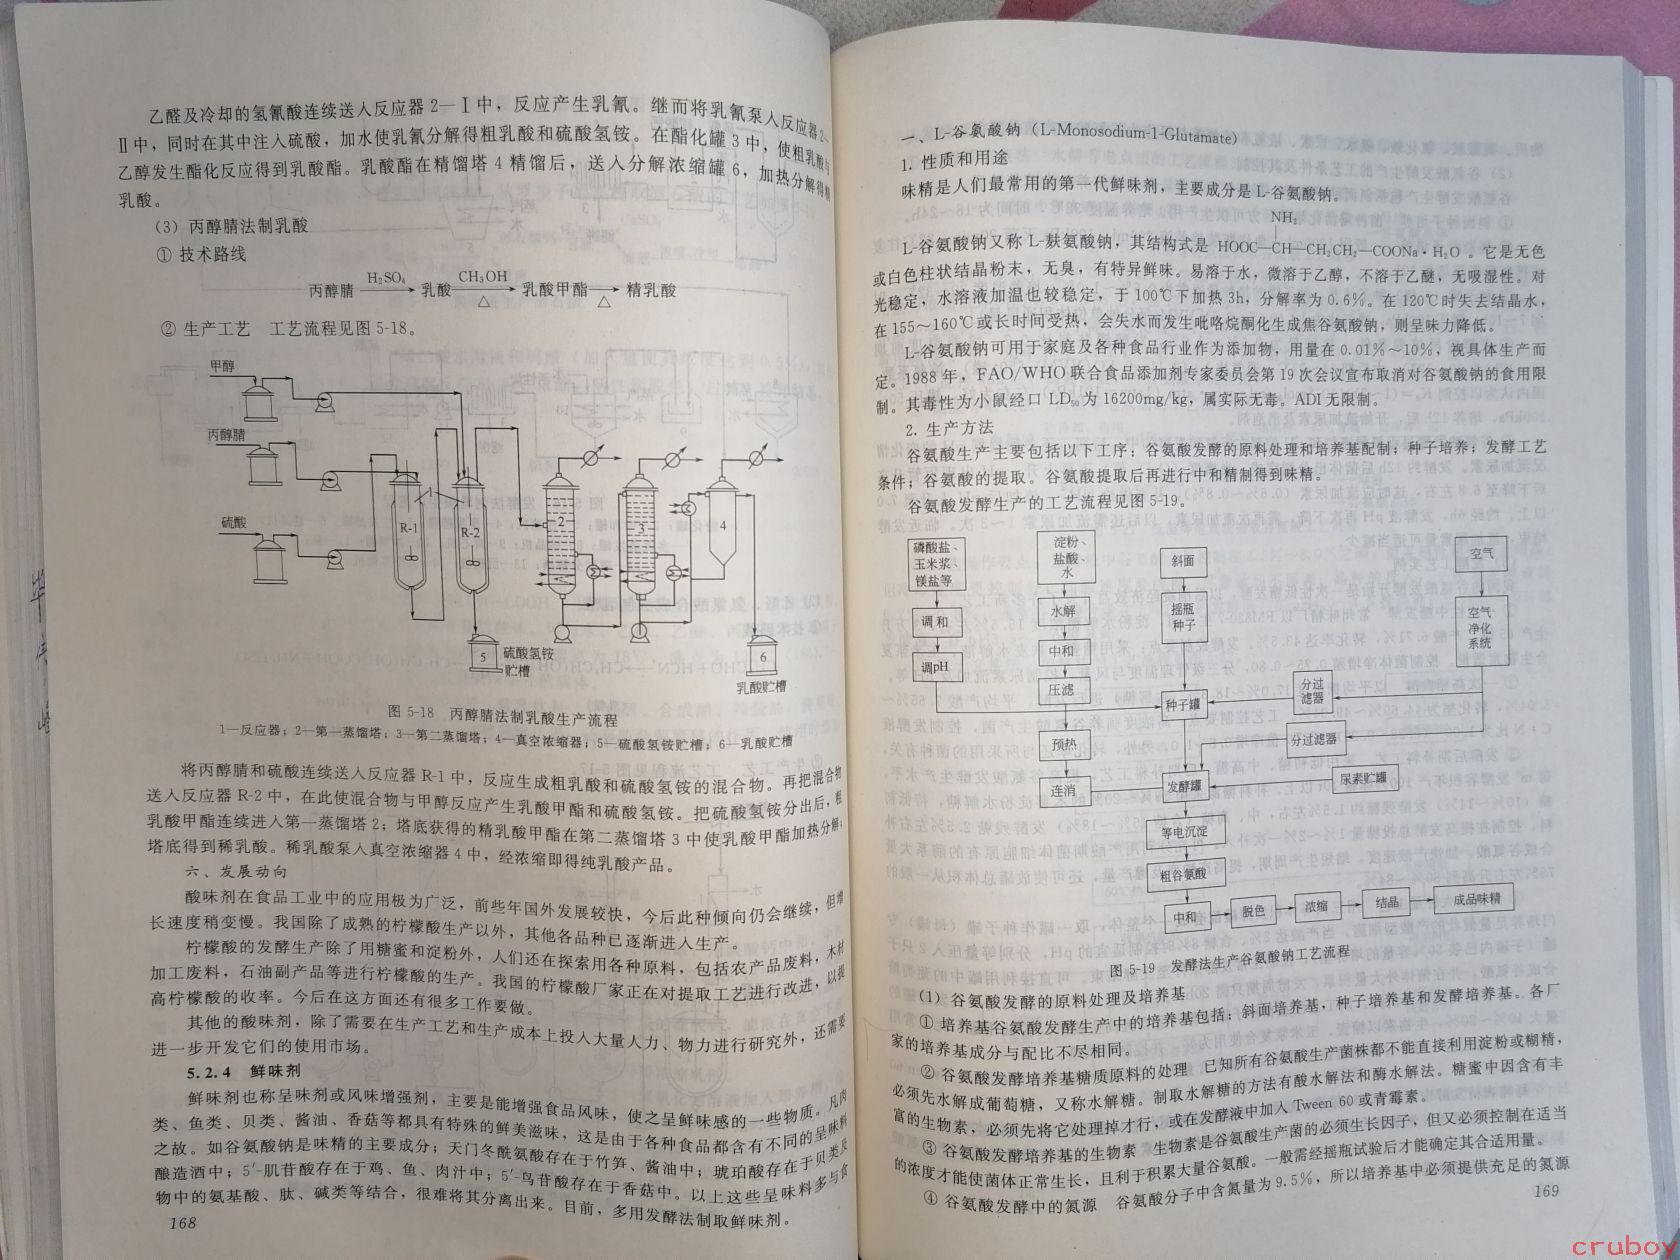 乙醛及冷却的氢氰酸连续送人反应器 2—Ⅰ中，反应产生乳氰。继而将乳氰泵人反应器2—
Ⅱ中，同时在其中注入硫酸，加水使乳氰分解得粗乳酸和硫酸氢铵。在酯化罐 3 中，使粗乳酸与
乙醇发生酯化反应得到乳酸酯。乳酸酯在精馏塔 4 精馏后，送人分解浓缩罐 6，加热分解得精
乳酸。
（3）丙醇腈法制乳酸
① 技术路线
丙醇腈 H₂SO₄→ 乳酸 CH₃OH△→ 乳酸甲酯 △→ 精乳酸
② 生产工艺　工艺流程见图 5-18。
甲醇
丙醇腈
硫酸
1
R-1
R-2
2
3
4
5
硫酸氢铵
贮槽
6
乳酸贮槽
图 5-18　丙醇腈法制乳酸生产流程
1—反应器；2—第一蒸馏塔；3—第二蒸馏塔；4—真空浓缩器；5—硫酸氢铵贮槽；6—乳酸贮槽
将丙醇腈和硫酸连续送人反应器 R-1 中，反应生成粗乳酸和硫酸氢铵的混合物。再把混合物
送人反应器 R-2 中，在此使混合物与甲醇反应产生乳酸甲酯和硫酸氢铵。把硫酸氢铵分出后，粗
乳酸甲酯连续进入第一蒸馏塔 2；塔底获得的精乳酸甲酯在第二蒸馏塔 3 中使乳酸甲酯加热分解；
塔底得到稀乳酸。稀乳酸泵人真空浓缩器 4 中，经浓缩即得纯乳酸产品。
六、发展动向
酸味剂在食品工业中的应用极为广泛，前些年国外发展较快，今后此种倾向仍会继续，但增
长速度稍变慢。我国除了成熟的柠檬酸生产以外，其他各品种已逐渐进人生产。
柠檬酸的发酵生产除了用糖蜜和淀粉外，人们还在探索用各种原料，包括农产品废料，木材
加工废料，石油副产品等进行柠檬酸的生产。我国的柠檬酸厂家正在对提取工艺进行改进，以提
高柠檬酸的收率。今后在这方面还有很多工作要做。
其他的酸味剂，除了需要在生产工艺和生产成本上投入大量人力、物力进行研究外，还需要
进一步开发它们的使用市场。
5.2.4　鲜味剂
鲜味剂也称呈味剂或风味增强剂，主要是能增强食品风味，使之呈鲜味感的一些物质。凡肉
类、鱼类、贝类、酱油、香菇等都具有特殊的鲜美滋味，这是由于各种食品都含有不同的呈味料
之故。如谷氨酸钠是味精的主要成分；天门冬酰氨酸存在于竹笋、酱油中；琥珀酸存在于贝类及
酿造酒中；5′-肌苷酸存在于鸡、鱼、肉汁中；5′-鸟苷酸存在于香菇中。以上这些呈味料多与食
物中的氨基酸、肽、碱类等结合，很难将其分离出来。目前，多用发酵法制取鲜味剂。
168
一、L-谷氨酸钠（L-Monosodium-1-Glutamate）
1. 性质和用途
味精是人们最常用的第一代鲜味剂，主要成分是 L-谷氨酸钠。
NH₂
L-谷氨酸钠又称 L-麸氨酸钠，其结构式是 HOOC—CH—CH₂CH₂—COONa·H₂O 。它是无色
或白色柱状结晶粉末，无臭，有特异鲜味。易溶于水，微溶于乙醇，不溶于乙醚，无吸湿性。对
光稳定，水溶液加温也较稳定，于 100℃下加热 3h，分解率为 0.6%。在 120℃时失去结晶水，
在 155～160℃或长时间受热，会失水而发生吡咯烷酮化生成焦谷氨酸钠，则呈味力降低。
L-谷氨酸钠可用于家庭及各种食品行业作为添加物，用量在 0.01%～10%，视具体生产而
定。1988 年，FAO/WHO 联合食品添加剂专家委员会第 19 次会议宣布取消对谷氨酸钠的食用限
制。其毒性为小鼠经口 LD₅₀为 16200mg/kg，属实际无毒。ADI无限制。
2. 生产方法
谷氨酸生产主要包括以下工序：谷氨酸发酵的原料处理和培养基配制；种子培养；发酵工艺
条件；谷氨酸的提取。谷氨酸提取后再进行中和精制得到味精。
谷氨酸发酵生产的工艺流程见图 5-19。
磷酸盐、
玉米浆、
镁盐等
淀粉、
盐酸、
水
斜面
空气
调和
水解
摇瓶
种子
空气
净化
系统
调pH
中和
压滤
种子罐
分过
滤器
预热
分过滤器
连消
发酵罐
尿素贮罐
等电沉淀
粗谷氨酸
中和
脱色
浓缩
结晶
成品味精
图 5-19　发酵法生产谷氨酸钠工艺流程
（1）谷氨酸发酵的原料处理及培养基
① 培养基谷氨酸发酵生产中的培养基包括：斜面培养基，种子培养基和发酵培养基。各厂
家的培养基成分与配比不尽相同。
② 谷氨酸发酵培养基糖质原料的处理　已知所有谷氨酸生产菌株都不能直接利用淀粉或糊精，
必须先水解成葡萄糖，又称水解糖。制取水解糖的方法有酸水解法和酶水解法。糖蜜中因含有丰
富的生物素，必须先将它处理掉才行，或在发酵液中加人 Tween 60 或青霉素。
③ 谷氨酸发酵培养基的生物素　生物素是谷氨酸生产菌的必须生长因子，但又必须控制在适当
的浓度才能使菌体正常生长，且利于积累大量谷氨酸。一般需经摇瓶试验后才能确定其合适用量。
④ 谷氨酸发酵中的氮源　谷氨酸分子中含氮量为 9.5%，所以培养基中必须提供充足的氮源
169
cruboy